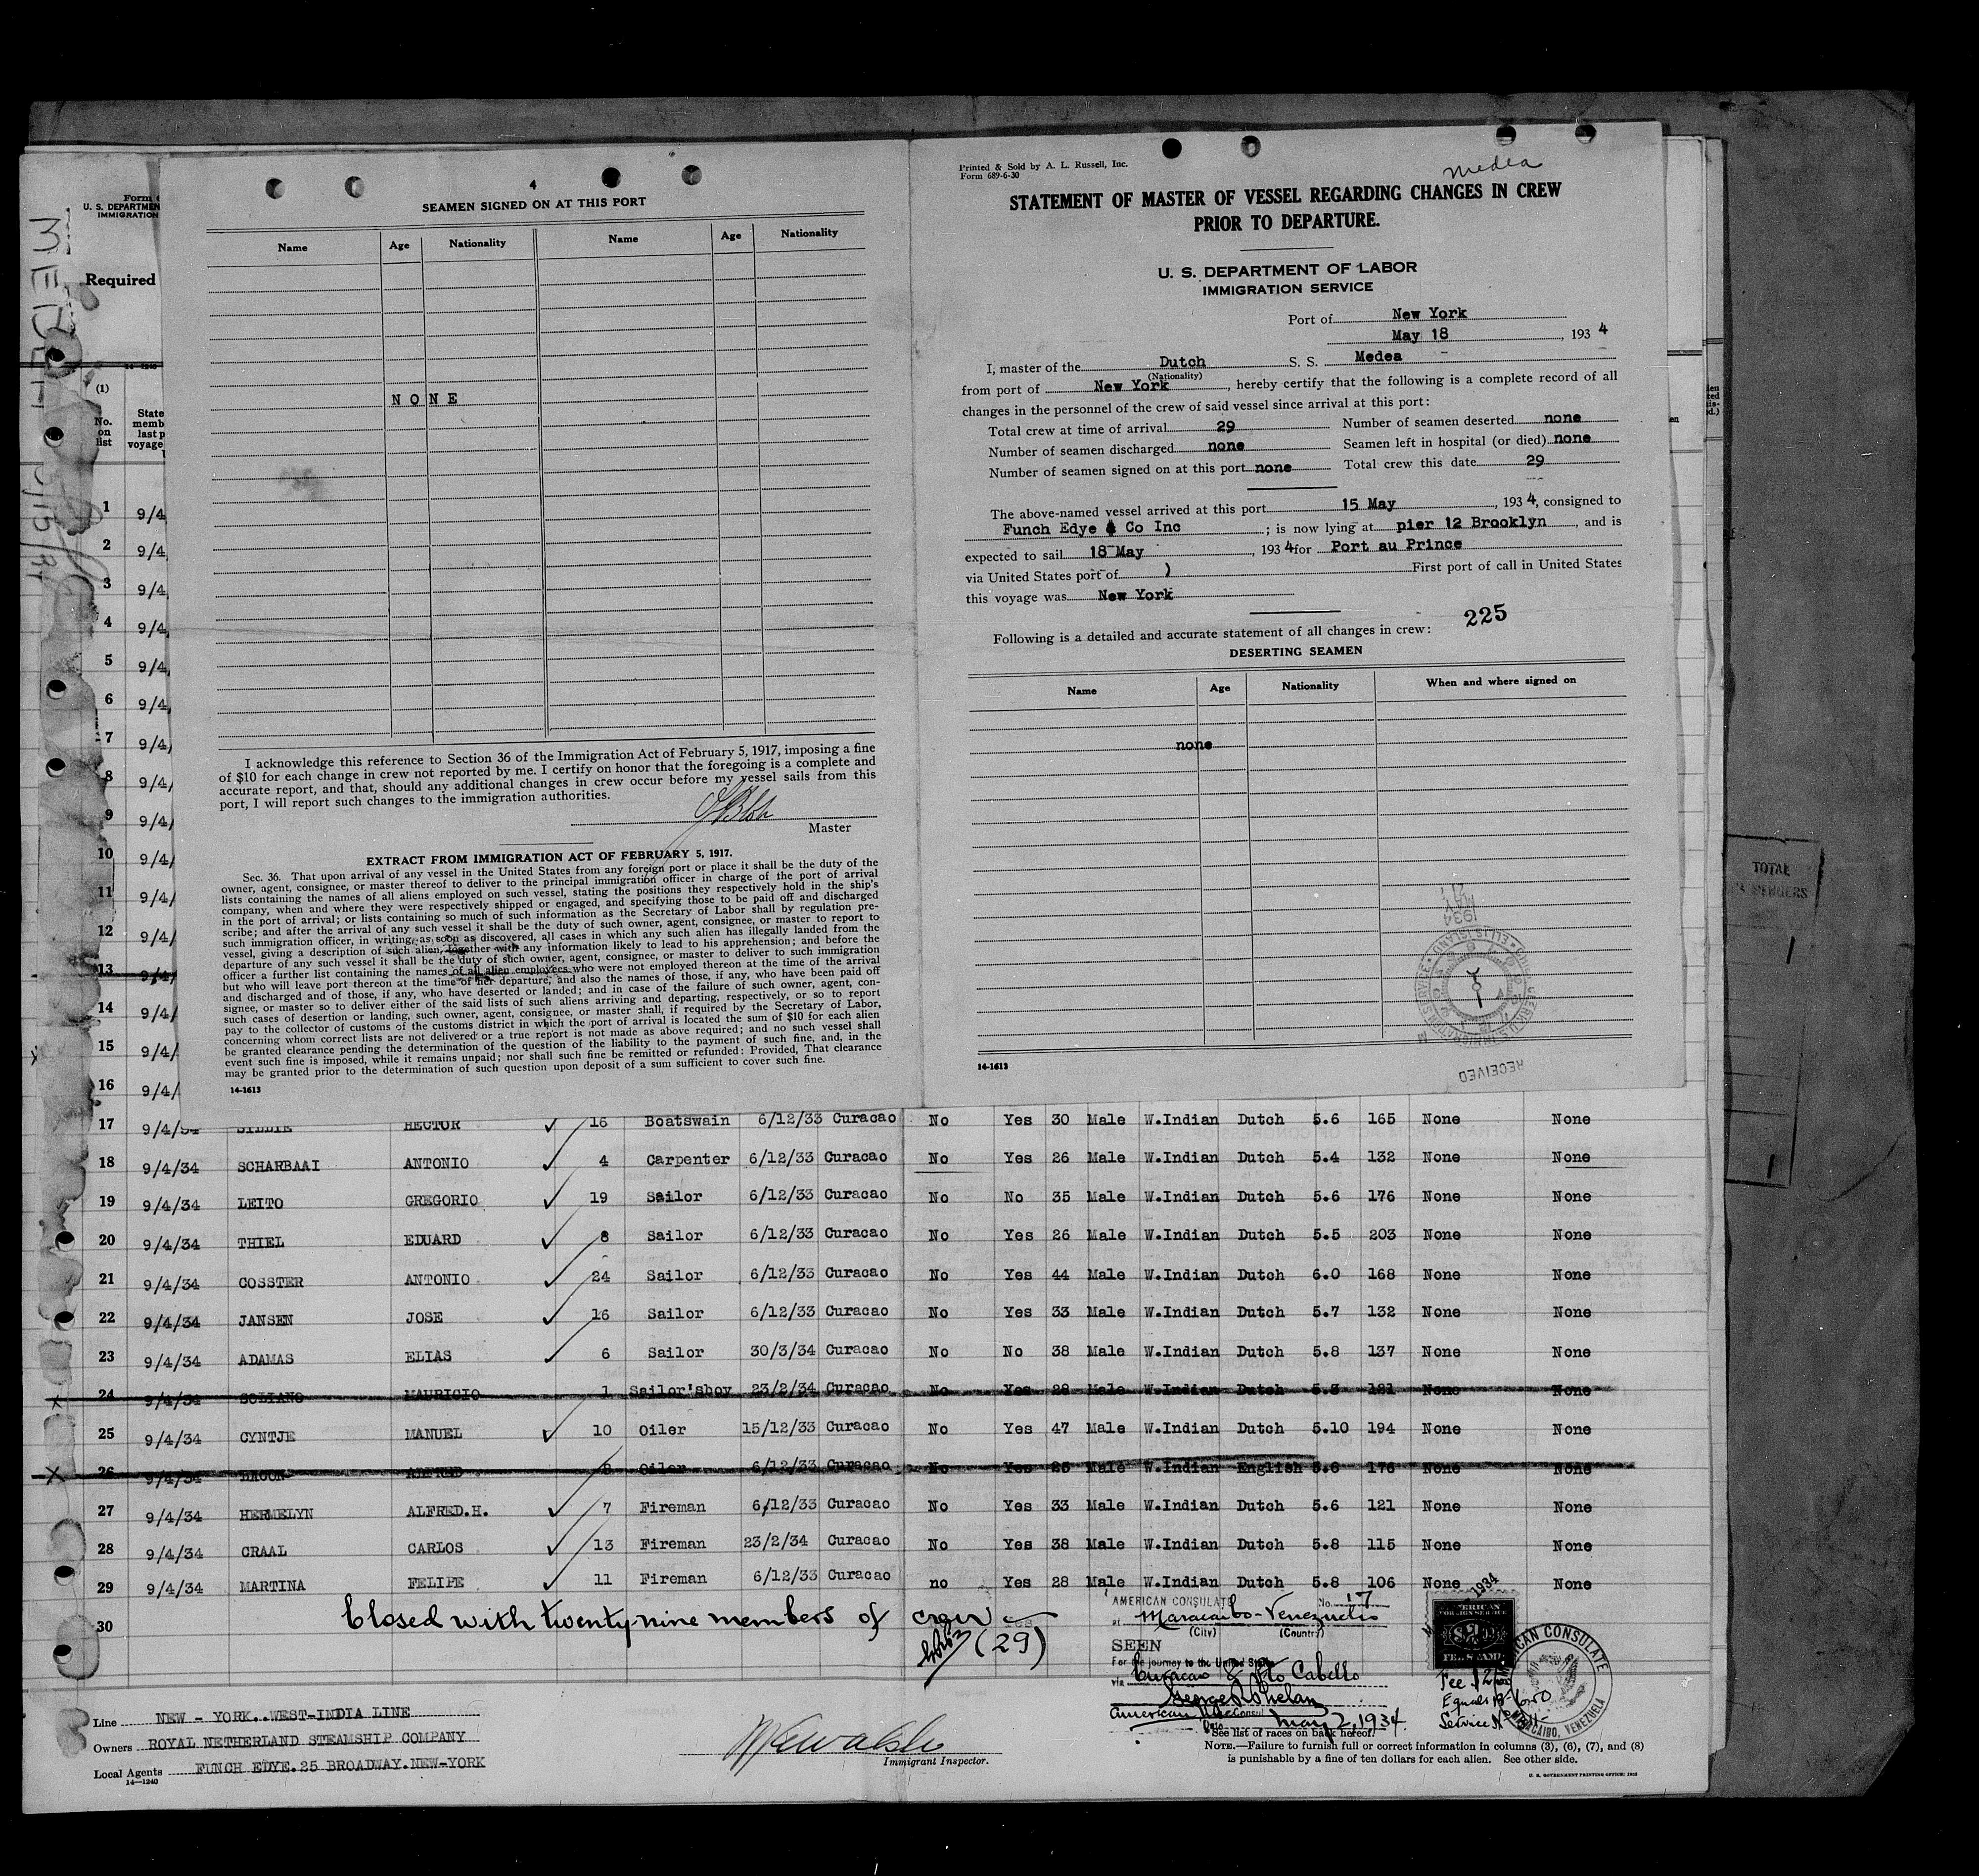 Form
U. S. DEPARTMEN
IMMIGRATION
Required
(1)
No.
on
list
State
memb
last p
voyage
1 9/4
2 9/4
3 9/4
4 9/4
5 9/4
6 9/4
7 9/4
8 9/4
9 9/4
10 9/4
11 9/4
12 9/4
13 9/4
14 9/4
15 9/4
16 9/4
4
SEAMEN SIGNED ON AT THIS PORT
Name Age Nationality Name Age Nationality
NONE
I acknowledge this reference to Section 36 of the Immigration Act of February 5, 1917, imposing a fine
of $10 for each change in crew not reported by me. I certify on honor that the foregoing is a complete and
accurate report, and that, should any additional changes in crew occur before my vessel sails from this
port, I will report such changes to the immigration authorities.
Master
EXTRACT FROM IMMIGRATION ACT OF FEBRUARY 5, 1917.
Sec. 36. That upon arrival of any vessel in the United States from any foreign port or place it shall be the duty of the
owner, agent, consignee, or master thereof to deliver to the principal immigration officer in charge of the port of arrival
lists containing the names of all aliens employed on such vessel, stating the positions they respectively hold in the ship's
company, when and where they were respectively shipped or engaged, and specifying those to be paid off and discharged
in the port of arrival; or lists containing so much of such information as the Secretary of Labor shall by regulation pre-
scribe; and after the arrival of any such vessel it shall be the duty of such owner, agent, consignee, or master to report to
such immigration officer, in writing, as soon as discovered, all cases in which any such alien has illegally landed from the
vessel, giving a description of such alien, together with any information likely to lead to his apprehension; and before the
departure of any such vessel it shall be the duty of such owner, agent, consignee, or master to deliver to such immigration
officer a further list containing the names of all alien employees who were not employed thereon at the time of the arrival
but who will leave port thereon at the time of her departure, and also the names of those, if any, who have been paid off
and discharged and of those, if any, who have deserted or landed; and in case of the failure of such owner, agent, con-
signee, or master so to deliver either of the said lists of such aliens arriving and departing, respectively, or so to report
such cases of desertion or landing, such owner, agent, consignee, or master shall, if required by the Secretary of Labor,
pay to the collector of customs of the customs district in which the port of arrival is located the sum of $10 for each alien
concerning whom correct lists are not delivered or a true report is not made as above required; and no such vessel shall
be granted clearance pending the determination of the question of the liability to the payment of such fine, and, in the
event such fine is imposed, while it remains unpaid; nor shall such fine be remitted or refunded: Provided, That clearance
may be granted prior to the determination of such question upon deposit of a sum sufficient to cover such fine.
14-1613
Printed & Sold by A. L. Russell, Inc.
Form 689-6-30
Medea
STATEMENT OF MASTER OF VESSEL REGARDING CHANGES IN CREW
PRIOR TO DEPARTURE.
U. S. DEPARTMENT OF LABOR
IMMIGRATION SERVICE
Port of New York
May 18, 1934
I, master of the Dutch S. S. Medea
(Nationality)
from port of New York, hereby certify that the following is a complete record of all
changes in the personnel of the crew of said vessel since arrival at this port:
Total crew at time of arrival 29 Number of seamen deserted none
Number of seamen discharged none Seamen left in hospital (or died) none
Number of seamen signed on at this port none Total crew this date 29
The above-named vessel arrived at this port 15 May, 1934, consigned to
Funch Edye & Co Inc; is now lying at pier 12 Brooklyn, and is
expected to sail 18 May, 1934 for Port au Prince
via United States port of ) First port of call in United States
this voyage was New York
225
Following is a detailed and accurate statement of all changes in crew:
DESERTING SEAMEN
Name Age Nationality When and where signed on
none
MAY 1934
RECEIVED
14-1613
TOTAL
17 9/4/34 HECTOR 16 Boatswain 6/12/33 Curacao No Yes 30 Male W.Indian Dutch 5.6 165 None None
18 9/4/34 SCHARBAAI ANTONIO 4 Carpenter 6/12/33 Curacao No Yes 26 Male W.Indian Dutch 5.4 132 None None
19 9/4/34 LEITO GREGORIO 19 Sailor 6/12/33 Curacao No No 35 Male W.Indian Dutch 5.6 176 None None
20 9/4/34 THIEL EDUARD 8 Sailor 6/12/33 Curacao No Yes 26 Male W.Indian Dutch 5.5 203 None None
21 9/4/34 COSSTER ANTONIO 24 Sailor 6/12/33 Curacao No Yes 44 Male W.Indian Dutch 6.0 168 None None
22 9/4/34 JANSEN JOSE 16 Sailor 6/12/33 Curacao No Yes 33 Male W.Indian Dutch 5.7 132 None None
23 9/4/34 ADAMAS ELIAS 6 Sailor 30/3/34 Curacao No No 38 Male W.Indian Dutch 5.8 137 None None
24 9/4/34 SOLIANO MAURICIO 1 Sailor'sboy 23/2/34 Curacao No Yes 28 Male W.Indian Dutch 5.3 121 None None
25 9/4/34 CYNTJE MANUEL 10 Oiler 15/12/33 Curacao No Yes 47 Male W.Indian Dutch 5.10 194 None None
26 9/4/34 Oiler 6/12/33 Curacao No Yes Male W.Indian English 176 None None
27 9/4/34 HERMELYN ALFRED.H. 7 Fireman 6/12/33 Curacao No Yes 33 Male W.Indian Dutch 5.6 121 None None
28 9/4/34 CRAAL CARLOS 13 Fireman 23/2/34 Curacao No Yes 38 Male W.Indian Dutch 5.8 115 None None
29 9/4/34 MARTINA FELIPE 11 Fireman 6/12/33 Curacao no Yes 28 Male W.Indian Dutch 5.8 106 None None
30 Closed with twenty-nine members of crew
(29)
AMERICAN CONSULATE No. 17
at Maracaibo-Venezuela
(City) (Country)
SEEN
For the journey to the United States
via Curacao & Pto Cabello
George R Phelan
American Vice Consul
Date May 2, 1934.
1934
Fee
Equals
Service No.
AMERICAN CONSULATE
MARACAIBO, VENEZUELA
Line NEW - YORK..WEST-INDIA LINE
Owners ROYAL NETHERLAND STEAMSHIP COMPANY
Local Agents FUNCH EDYE.25 BROADWAY.NEW-YORK
14-1240
Immigrant Inspector.
*See list of races on back hereof.
NOTE.—Failure to furnish full or correct information in columns (3), (6), (7), and (8)
is punishable by a fine of ten dollars for each alien. See other side.
U. S. GOVERNMENT PRINTING OFFICE: